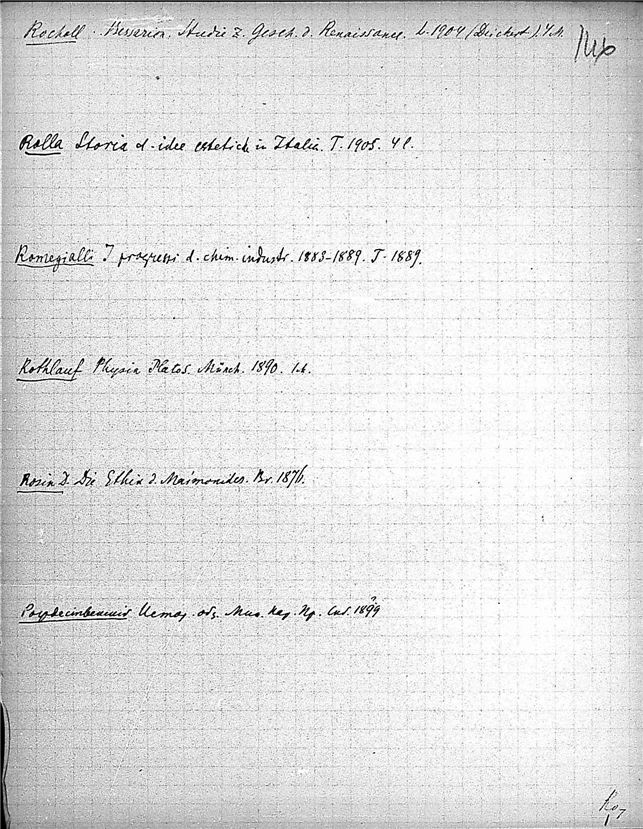 Rocholl. Bessarion. Studie z. Gesch. d. Renaissance. L. 1904 (Deichert).
146
Rolla Storia d. idee estetich. in Italia. T. 1905. 4 l.
Romegialli I progressi d. chim. industr. 1883-1889. T. 1889.
Rothlauf Physik Platos. Münch. 1890.
Rosin D. Die Ethik d. Maimonides. Br. 1876.
1899